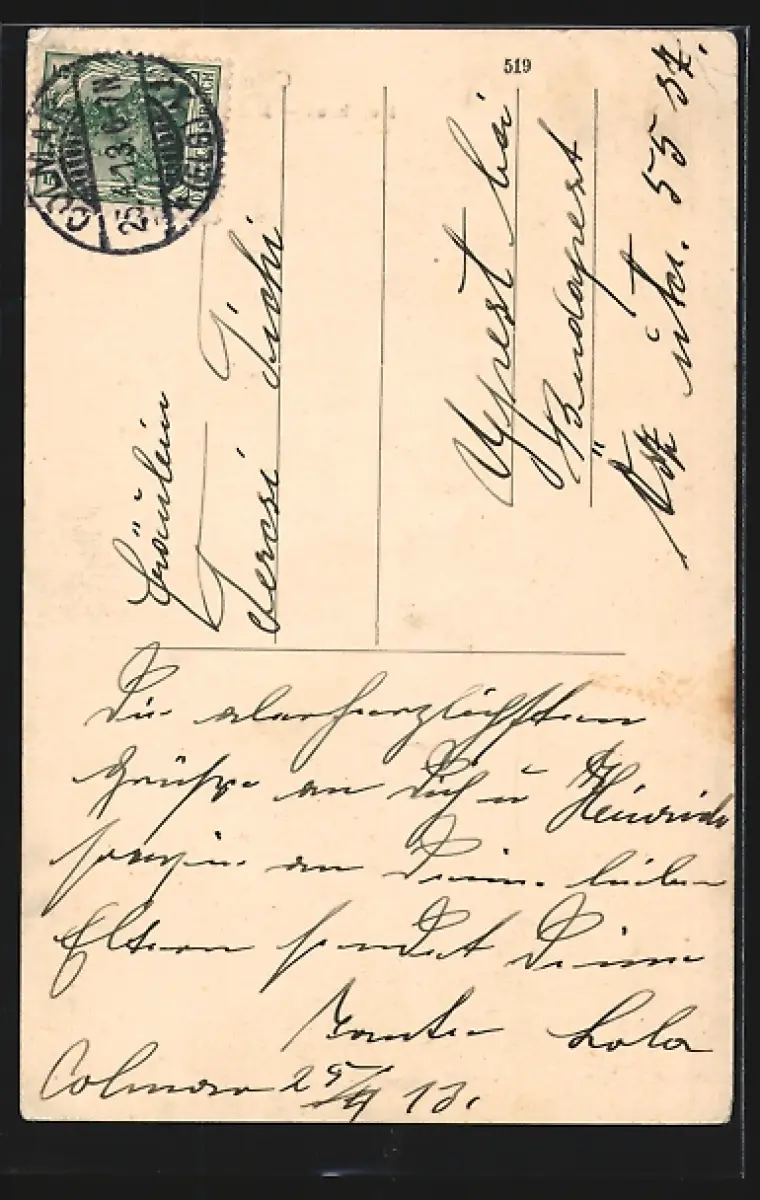 519
COLMAR (ELS.)
25.4.13. 6-7N
Fräulein
Tercsi Tichi
Ujpest bei
Büdapest
utca. 55 sz.
Die allerherzlichsten
Grüße an Dich u Heinrich
sowie an Deine lieben
Eltern sendet Deine
Tante Lola
Colmar 25/4 13.